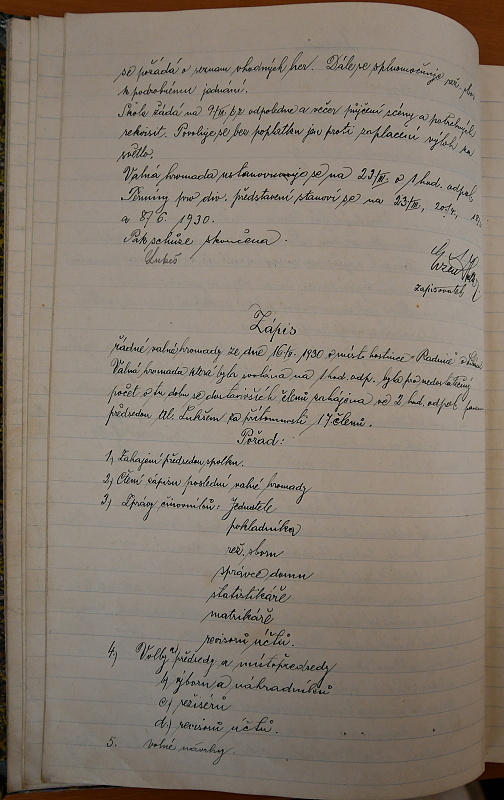 se požádá o seznam vhodných her. Dále se splnomocňuje rež. sbor
k podrobnému jednání.
Škola žádá na 9/III. b.r. odpoledne a večer půjčení scény a potřebných
rekvisit. Povoluje se bez poplatku jen proti zaplacení výloh za
světlo.
Valná hromada ustanovuje se na 23/III. o 1 hod. odpol.
Termíny pro div. představení stanoví se na 23/III., 20/4.,
a 8/6. 1930.
Pak schůze skončena.
Lukeš
zapisovatel
Zápis
řádné valné hromady ze dne 1930 v místn. hostince "Radnice" v
Valná hromada která byla svolána na 1 hod. odp. byla pro nedostatečný
počet v tu dobu se dostavivších členů zahájena ve 2 hod. odpol. panem
předsedou Al. Lukešem za přítomnosti 17 členů.
Pořad:
1, Zahájení předsedou spolku.
2, Čtení zápisu poslední valné hromady
3, Zprávy činovníků: Jednatele
pokladníka
rež. sboru
správce domu
statistikáře
matrikáře
revisorů účtů.
4, Volby a, předsedy a místopředsedy
b, výboru a náhradníků
c, režisérů
d, revisorů účtů.
5. volné návrhy.